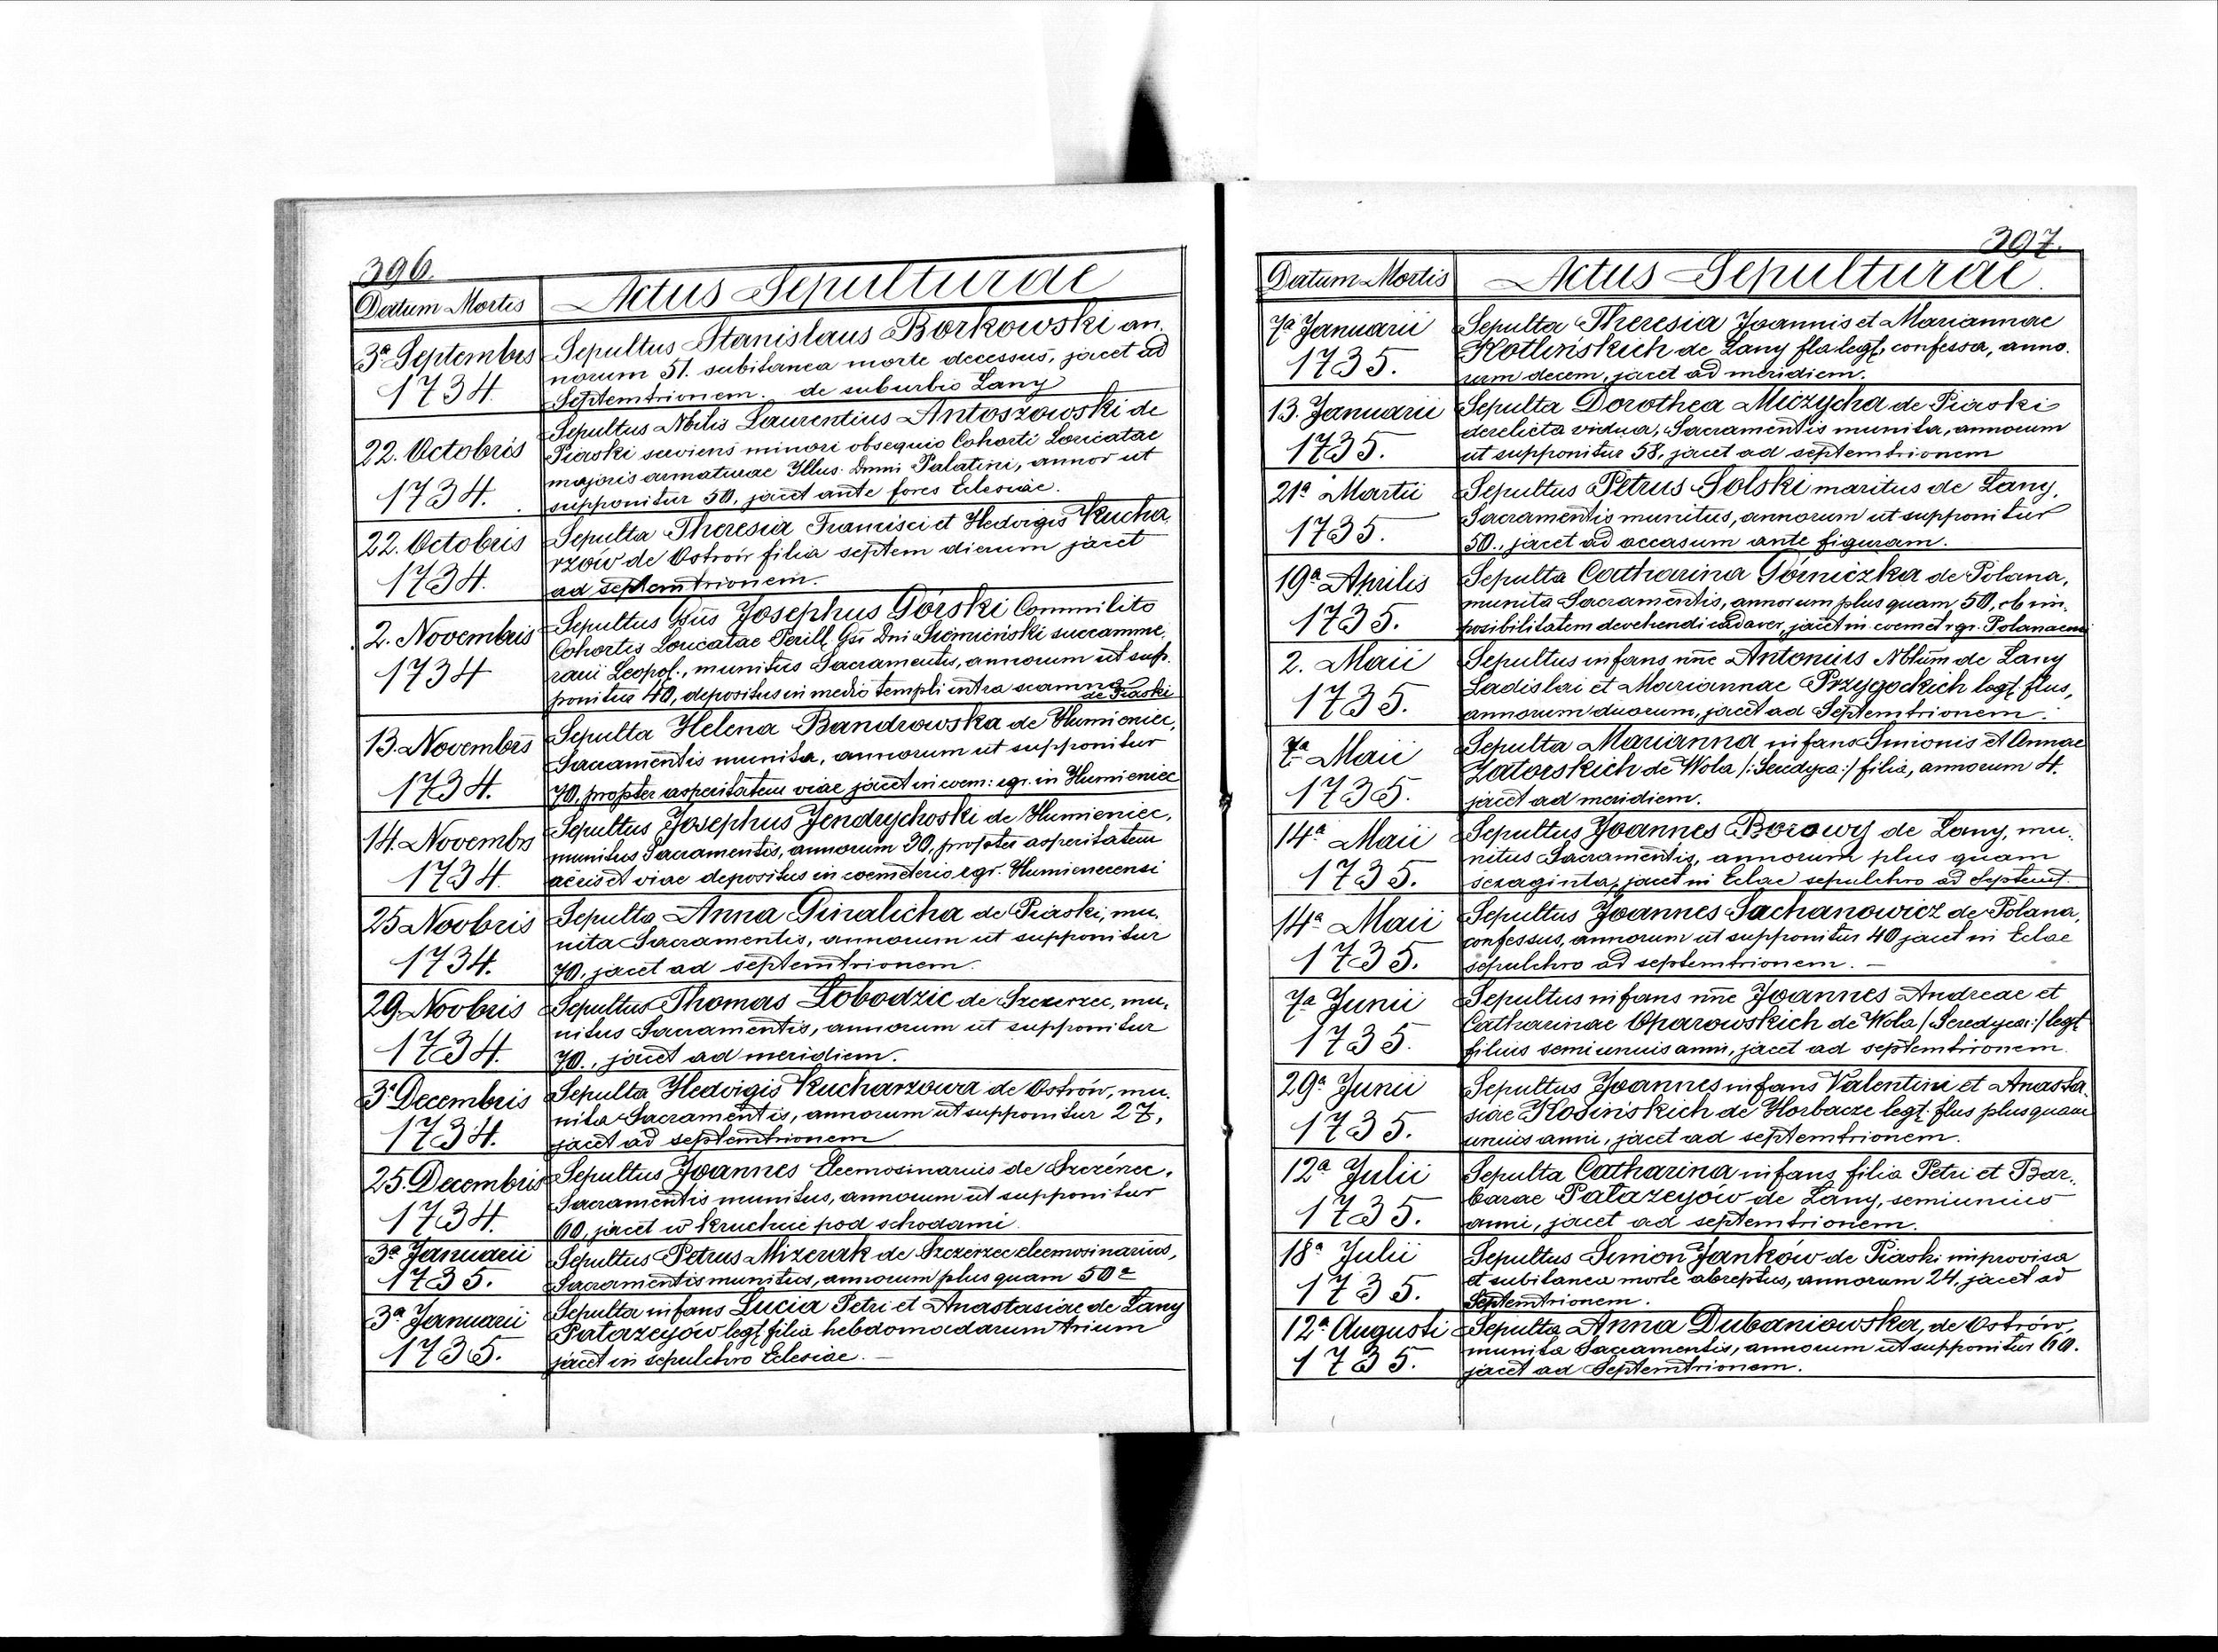 396.
Datum Mortis
Actus Sepulturae
3ª Septembrs
1734.
Sepultus Stanislaus Borkowski an.
norum 51. subitanea morte decessus, jacet ad
Septemtrionem. de suburbio Lany
22. Octobris
1734.
Sepultus Nbilis Laurentius Antoszowski de
Piaski serviens minori obsequio Cohorti Loricatae
majoris armaturae Yllus. Dnni Palatini, annor ut
supponitur 50, jacet ante fores Eclesiae.
22. Octobris
1734.
Sepulta Theresia Francisci et Hedvigis Kucha.
rzów de Ostrów filia septem dierum jacet
ad septemtrionem.
2. Novembris
1734
Sepultus Gsus Josephus Górski Commilito
Cohortis Loricatae Perill. Gsi Dni Siemieński succamme.
rarii Leopol., munitus Sacramentis, annorum ut sup.
ponitur 40, depositus in medio templi intra scamna
de Piaski
13. Novembrs
1734.
Sepulta Helena Bandrowska de Humieniec,
Sacramentis munita, annorum ut supponitur
70, propter asperitatem viae jacet in coem: rgr. in Humieniec
14. Novembrs
1734
Sepultus Josephus Jendrychoski de Humieniec,
munitus Sacramentis, annorum 30, propter asperitatem
aeris et viae depositus in coemeterio rgr. Humienecensi
25 Novbris
1734.
Sepulta Anna Ginalicha de Piaski, mu.
nita Sacramentis, annorum ut supponitur
70, jacet ad septemtrionem.
29. Novbris
1734.
Sepultus Thomas Lobodzic de Szczerzec, mu.
nitus Sacramentis, annorum ut supponitur
70., jacet ad meridiem.
3ª Decembris
1734.
Sepulta Hedvigis Kucharzowa de Ostrów, mu.
nita Sacramentis, annorum ut supponitur 27,
jacet ad septemtrionem
25. Decembris
1734.
Sepultus Joannes Elecmosinarius de Szczérzec.
Sacramentis munitus, annorum ut supponitur
60, jacet w kruchcie pod schodami.
3ª Januarii
1735.
Sepultus Petrus Mizerak de Szczerzec elecmosinarius,
Sacramentis munitus, annorum plus quam 50ª
3ª Januarii
1735.
Sepulta infans Lucia Petri et Anastasiae de Lany
Patazeyów legt. filia hebdomadarum trium
jacet in sepulchro Eclesiae. —
397.
Datum Mortis
Actus Sepulturae.
7ª Januarii
1735.
Sepulta Theresia Joannis et Mariannae
Kotlińskich de Lany fla legt. confessa, anno.
rum decem, jacet ad meridiem.
13. Januarii
1735.
Sepulta Dorothea Miczycha de Piaski
derelicta vidua, Sacramentis munita, annorum
ut supponitur 58, jacet ad septemtrionem
21ª Martii
1735.
Sepultus Petrus Solski maritus de Lany,
Sacramentis munitus, annorum ut supponitur
50., jacet ad occasum ante figuram.
19ª Aprilis
1735.
Sepulta Catharina Górniczka de Polana,
munita Sacramentis, annorum plus quam 50, ob im.
posibilitatem devehendi cadaver, jacet in coemet rgr. Polanaensi
2. Maii
1735.
Sepultus infans nne Antonius Nblium de Lany
Ladislai et Mariannae Przygockich legt. flus,
annorum duorum, jacet ad Septemtrionem.
7ª Maii
1735.
Sepulta Marianna infans Simonis et Annae
Zatorskich de Wola /:Seredyca:/ filia, annorum 4.
jacet ad meridiem.
14ª Maii
1735.
Sepultus Joannes Borowy de Lany, mu.
nitus Sacramentis, annorum plus quam
sexaginta, jacet in Eclae sepulchro ad Septemt.
14ª Maii
1735.
Sepultus Joannes Sachanowicz de Polana,
confessus, annorum ut supponitur 40 jacet in Eclae
sepulchro ad septemtrionem. —
7ª Junii
1735.
Sepultus infans nne Joannes Andreae et
Catharinae Oparowskich de Wola /Seredyca:/ legt
filius semiunius anni, jacet ad septemtrionem.
29ª Junii
1735.
Sepultus Joannes infans Valentini et Anasta.
siae Kosińskich de Horbacze legt. flus plus quam
unius anni, jacet ad septemtrionem.
12ª Julii
1735.
Sepulta Catharina infans filia Petri et Bar.
barae Patazeyów de Lany, semiunius
anni, jacet ad septemtrionem.
18ª Julii
1735.
Sepultus Simon Janków de Piaski improvisa
et subitanea morte abreptus, annorum 24, jacet ad
Septemtrionem.
12ª Augusti
1735.
Sepulta Anna Dubaniowska, de Ostrów,
munita Sacramentis, annorum ut supponitur 60.
jacet ad Septemtrionem.